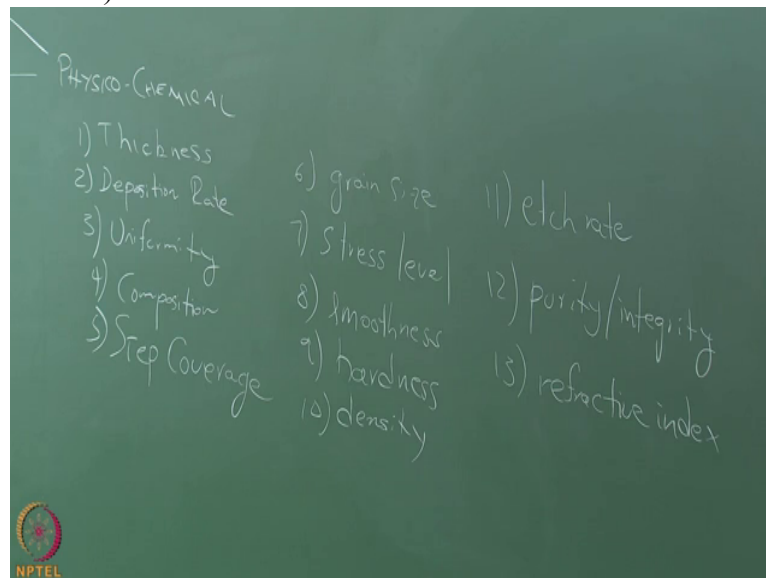 PHYSICO-CHEMICAL
1) Thickness
2) Deposition Rate
3) Uniformity
4) Composition
5) Step Coverage
6) grain size
7) Stress level
8) Smoothness
9) hardness
10) density
11) etch rate
12) purity/integrity
13) refractive index
NPTEL